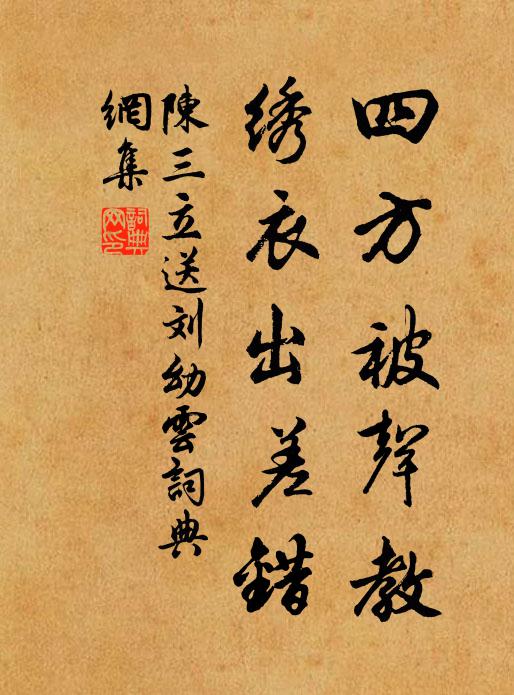 四方被聲教
绣衣出差錯
陳三立送刘幼雲詞典
網集
詞典
网印